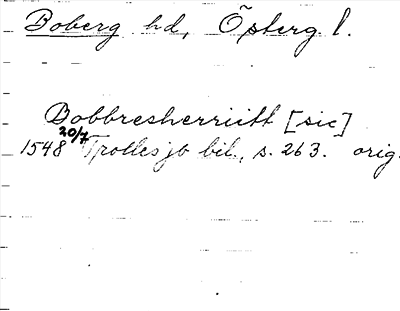 Boberg hd, Österg. l.
Bobbresherriitt [sic]
1548 20/7 Trolles jb bil., s. 263. orig.